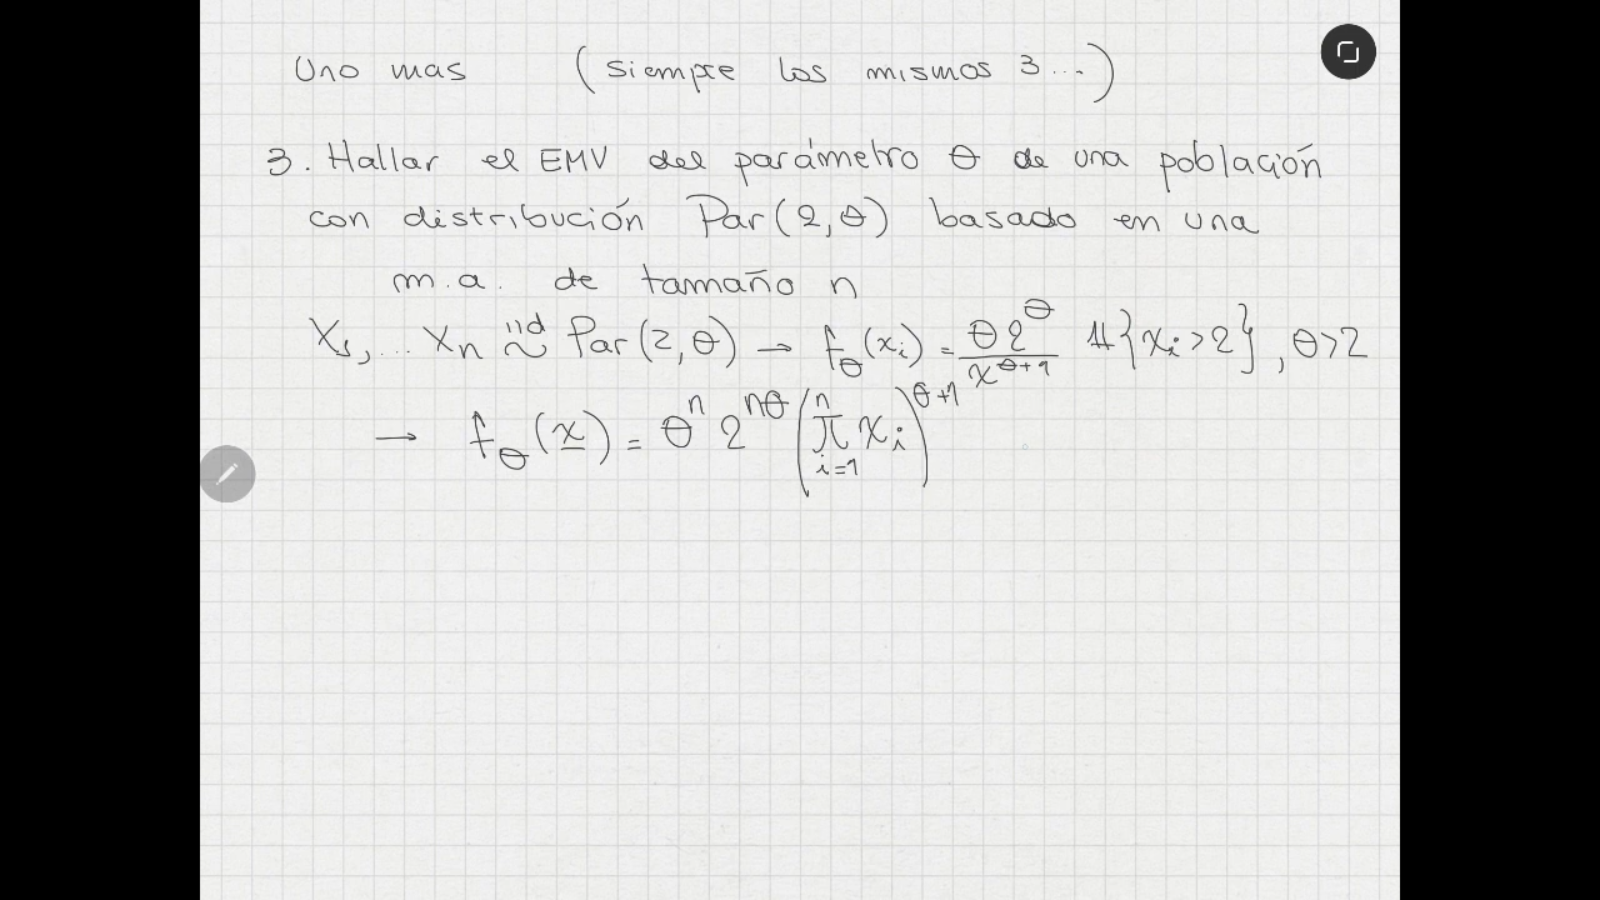 Uno mas (siempre los mismos 3...)
3. Hallar el EMV del parámetro θ de una población
con distribución Par(2,θ) basado en una
m.a. de tamaño n
X₁,... Xn iid ~ Par(2,θ) → f_θ(xᵢ) = θ2^θ / x^(θ+1) 𝟙{xᵢ>2}, θ>2
→ f_θ(x) = θ^n 2^(nθ) (∏_{i=1}^n xᵢ)^(θ+1)